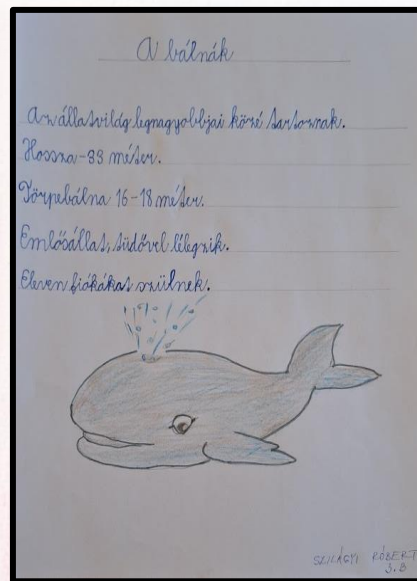 A bálnák
Az állatvilág legnagyobbjai közé tartoznak.
Hossza-33 méter.
Törpebálna 16-18 méter.
Emlősállat, tüdővel lélegzik.
Eleven fiókákat szülnek.
SZILÁGYI RÓBERT
3.B